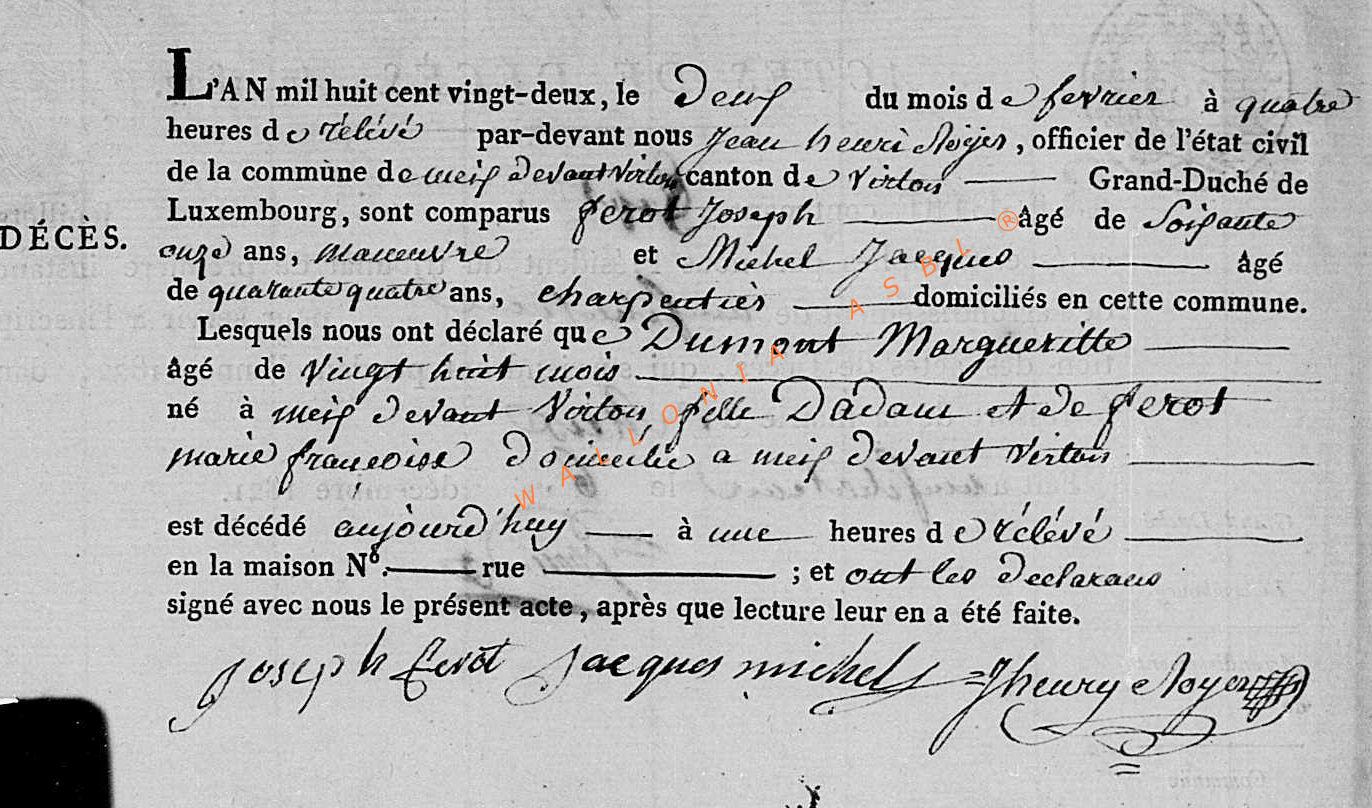 L'AN mil huit cent vingt-deux, le Deux du mois de fevrier à quatre
heures de rélévé par-devant nous Jean henri Noÿer, officier de l'état civil
de la commune de meix devant Virton canton de Virton Grand-Duché de
Luxembourg, sont comparus ferot Joseph âgé de Soixante
DÉCÈS.
onze ans, maneuvre et Michel Jacques âgé
de quarante quatre ans, charpentier domiciliés en cette commune.
Lesquels nous ont déclaré que Dumont Margueritte
âgé de vingt huit mois
né à meix devant Virton, fille Dadam et de ferot
marie françoise domicilié a meix devant Virton
est décédé aujourd'huy à une heures de rélévé
en la maison N°. rue ; et ont les declarans
signé avec nous le présent acte, après que lecture leur en a été faite.
Joseph ferot Jacques michel Jhenry Noyer
WALLONIA ASBL ®